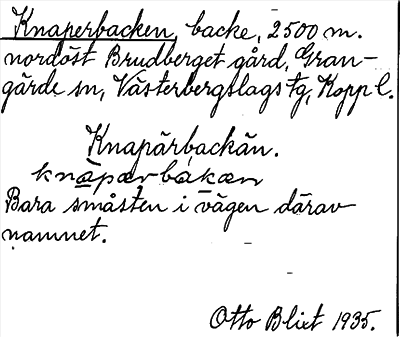 Knaperbacken, backe, 2500 m.
nordöst Brudberget gård, Gran-
gärde sn, Västerbergslags tg, Kopp l.
Knapärbackän.
knäpærbakæn
Bara småsten i vägen därav
namnet.
Otto Blixt 1935.